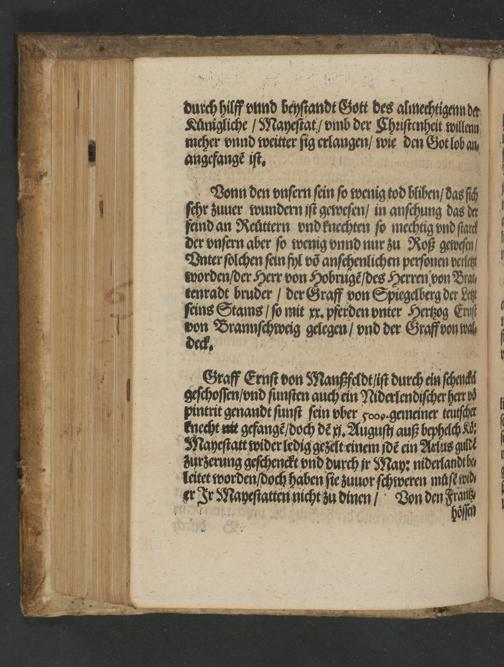 durch hilff vnnd beystandt Gott des almechtigenn der
Künigliche / Mayestat / vmb der Christenheit willenn
meher vnnd weitter sig erlangen / wie den Got lob an⸗
angefangē ist.
Vonn den vnsern sein so wenig tod bliben / das sich
sehr zuuer wundern ist gewesen / in ansehung das der
feind an Reüttern vnd knechten so mechtig vnd starck
der vnsern aber so wenig vnnd nur zu Roß gewesen /
Vnter solchen sein fyl vō ansehenlichen personen verletzt
worden / der Herr von Hobrugē / des Herren von Bra⸗
tenradt bruder / der Graff von Spiegelberg der Letzt
seins Stams / so mit xx. pferden vnter Hertzog Ernst
von Brannschweig gelegen / vnd der Graff von wal⸗
deck.
Graff Ernst von Manßfeldt / ist durch ein schenckel
geschossen / vnd sunsten auch ein Niderlendischer herr vō
pintrit genandt sunst sein vber 5000. gemeiner teutscher
knecht mit gefangē / doch dē xj. Augusti auß beyhelch Kö:
Mayestatt wider ledig gezelt einem idē ein Aelus guldē
zur zerung geschenckt vnd durch jr May: niderlandt be⸗
leitet worden / doch haben sie zuuor schweren müsē wid⸗
er Jr Mayestatten nicht zu dinen / Von den Frantz⸗
hössen